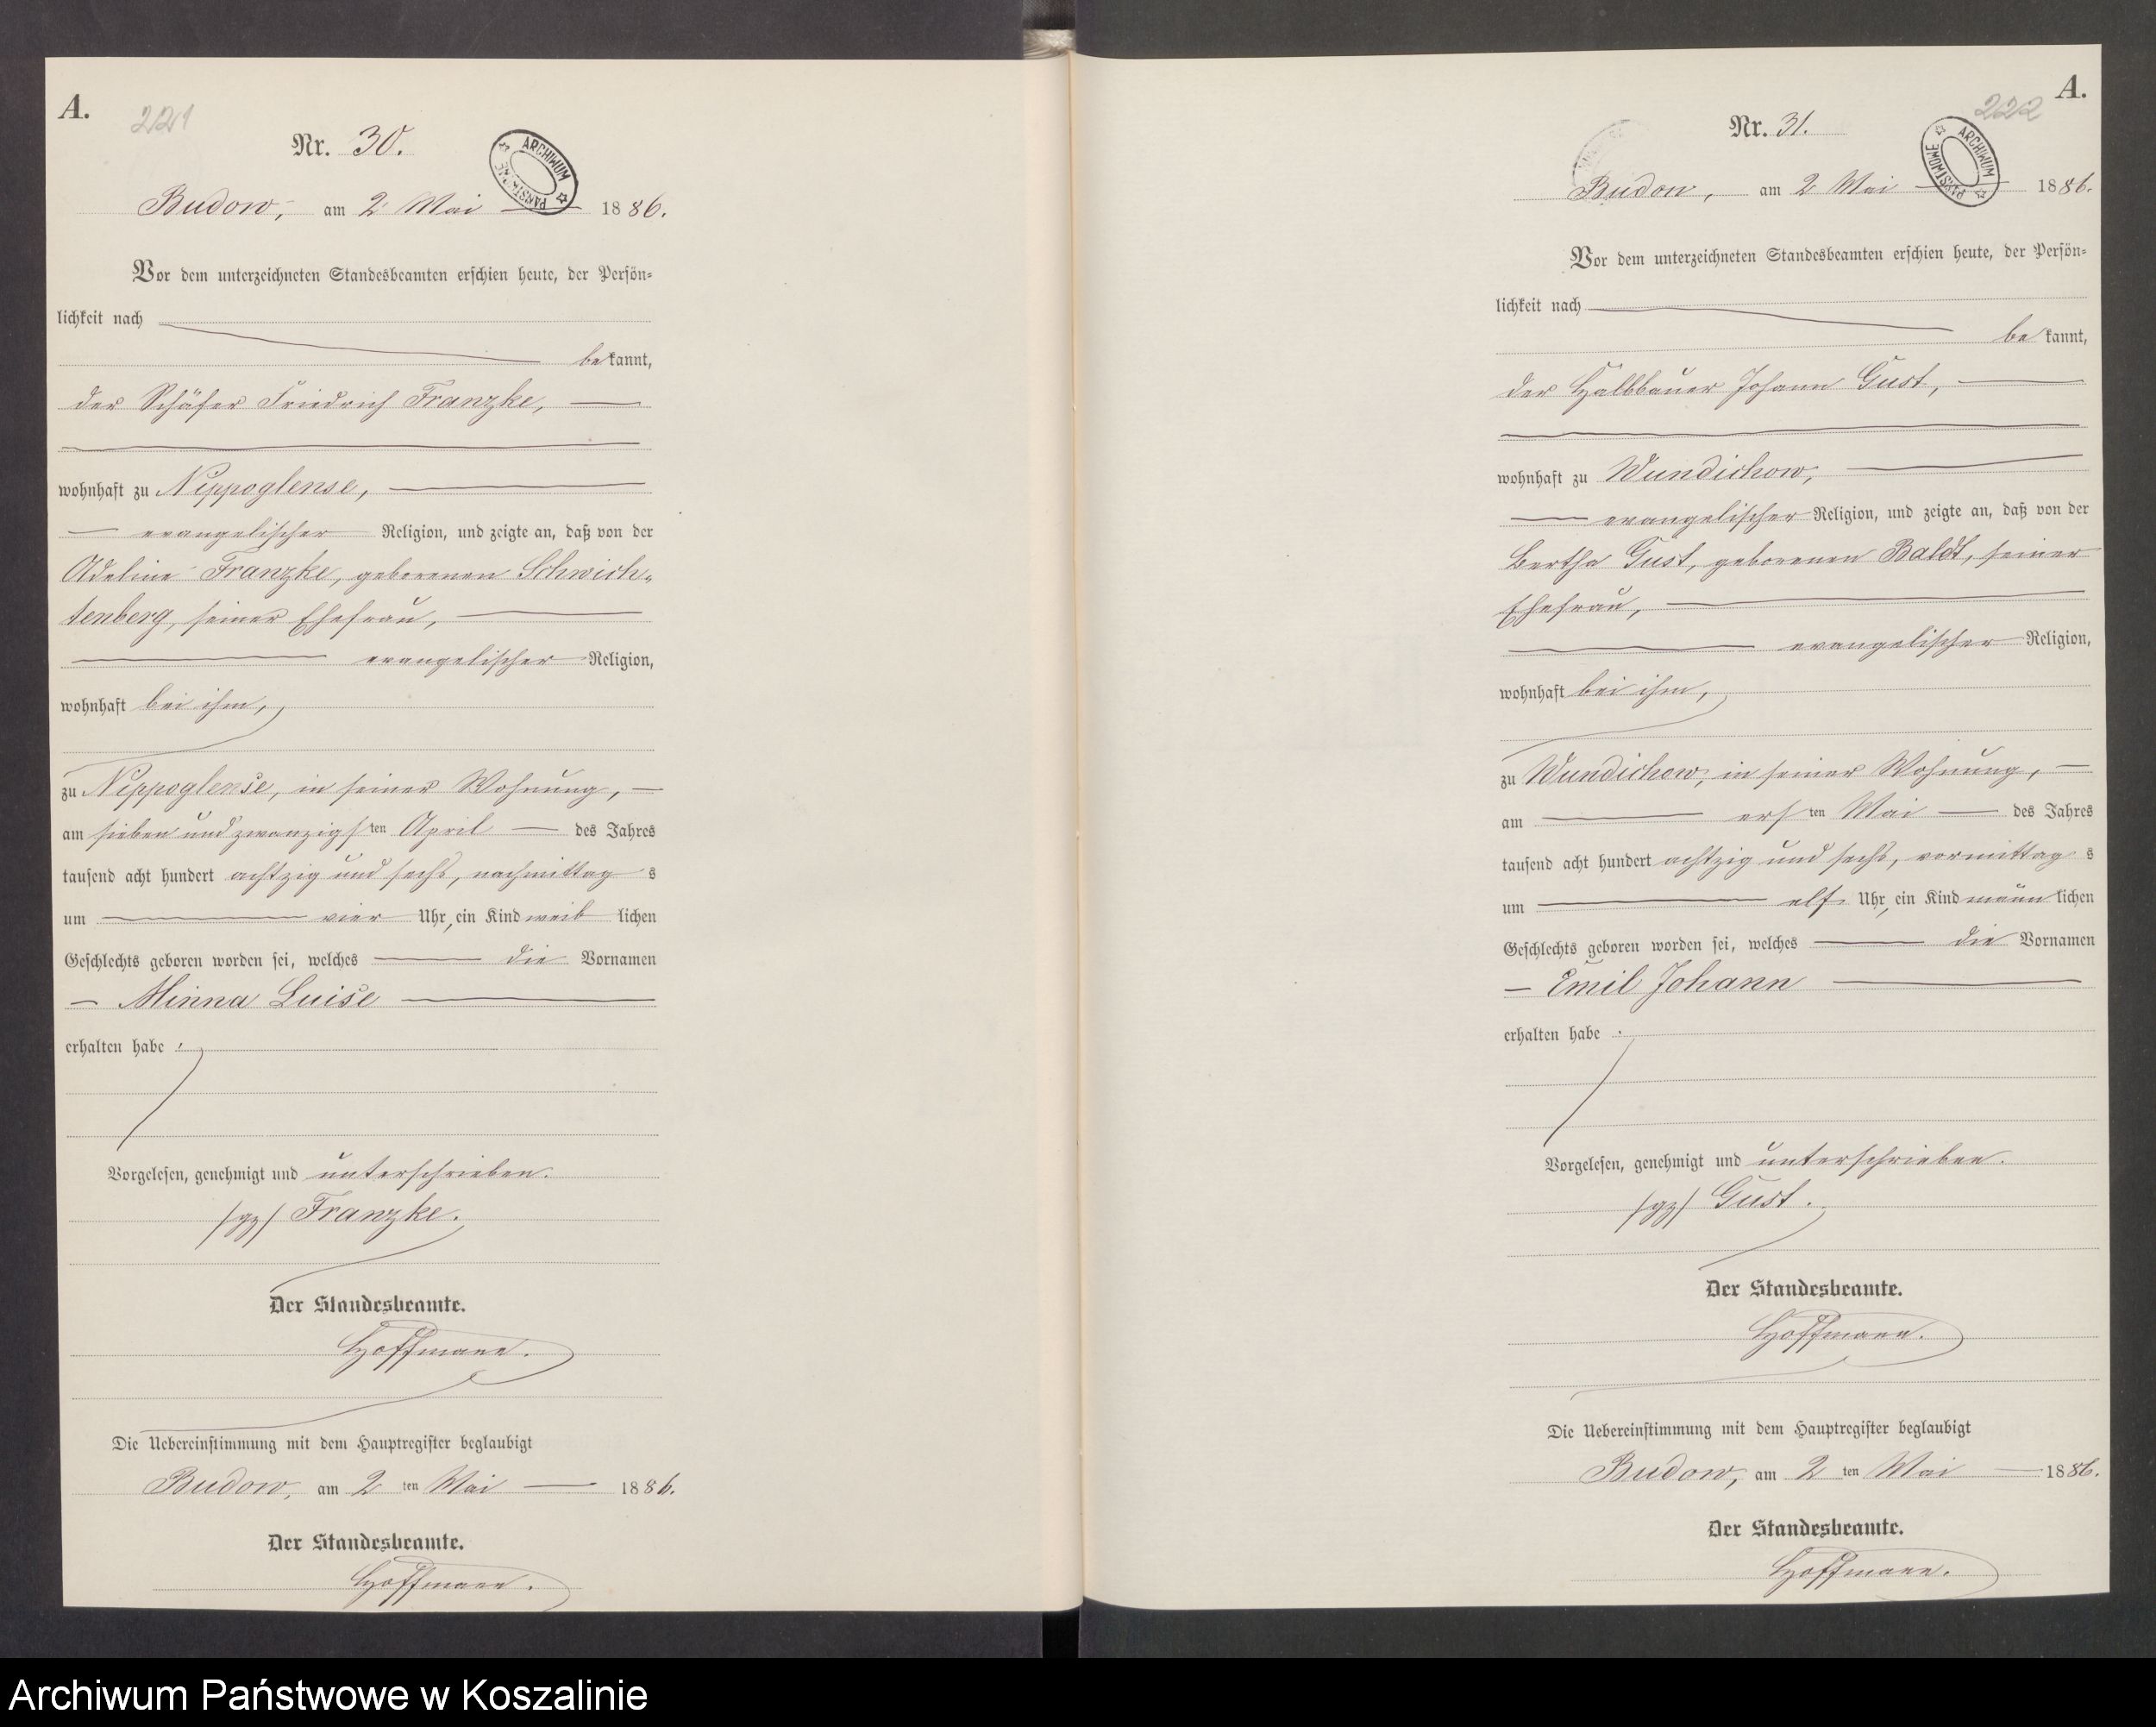 A.
221
Nr. 30.
ARCHIWUM PAŃSTWOWE
Budow, am 2 Mai 1886.
Vor dem unterzeichneten Standesbeamten erschien heute, der Persön-
lichkeit nach
bekannt,
der Schäfer Friedrich Franzke,
wohnhaft zu Nippoglense,
evangelischer Religion, und zeigte an, daß von der
Adeline Franzke, geborenen Schwich-
tenberg, seiner Ehefrau,
evangelischer Religion,
wohnhaft bei ihm,
zu Nippoglense, in seiner Wohnung,
am sieben und zwanzigsten April des Jahres
tausend acht hundert achtzig und sechs, nachmittags
um vier Uhr, ein Kind weiblichen
Geschlechts geboren worden sei, welches die Vornamen
Minna Luise
erhalten habe.
Vorgelesen, genehmigt und unterschrieben.
/gz/ Franzke.
Der Standesbeamte.
Hoffmann.
Die Uebereinstimmung mit dem Hauptregister beglaubigt
Budow, am 2ten Mai 1886.
Der Standesbeamte.
Hoffmann.
A.
222
Nr. 31.
ARCHIWUM PAŃSTWOWE
Budow, am 2 Mai 1886.
Vor dem unterzeichneten Standesbeamten erschien heute, der Persön-
lichkeit nach
bekannt,
der Halbbauer Johann Gust,
wohnhaft zu Wundichow,
evangelischer Religion, und zeigte an, daß von der
Bertha Gust, geborenen Baldt, seiner
Ehefrau,
evangelischer Religion,
wohnhaft bei ihm,
zu Wundichow, in seiner Wohnung,
am ersten Mai des Jahres
tausend acht hundert achtzig und sechs, vormittags
um elf Uhr, ein Kind männlichen
Geschlechts geboren worden sei, welches die Vornamen
Emil Johann
erhalten habe.
Vorgelesen, genehmigt und unterschrieben.
/gz/ Gust.
Der Standesbeamte.
Hoffmann.
Die Uebereinstimmung mit dem Hauptregister beglaubigt
Budow, am 2ten Mai 1886.
Der Standesbeamte.
Hoffmann.
Archiwum Państwowe w Koszalinie